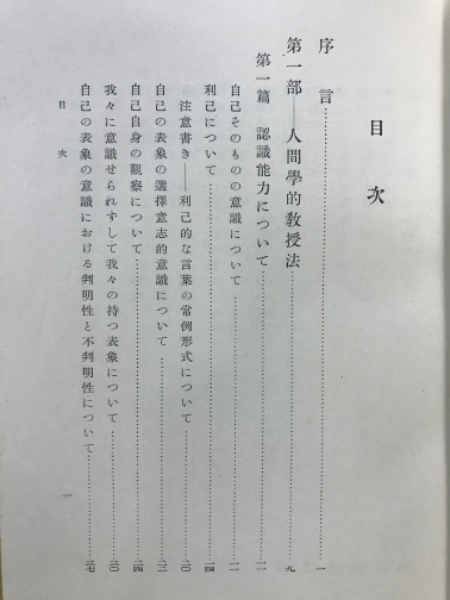 目次
序言……一
第一部——人間學的教授法……九
第一篇 認識能力について……一一
自己そのものの意識について……一一
利己について……一四
注意書き——利己的な言葉の常例形式について……二〇
自己の表象の選擇意志的意識について……二二
自己自身の觀察について……二四
我々に意識せられずして我々の持つ表象について……三〇
自己の表象の意識における判明性と不判明性について……三七
目次 一